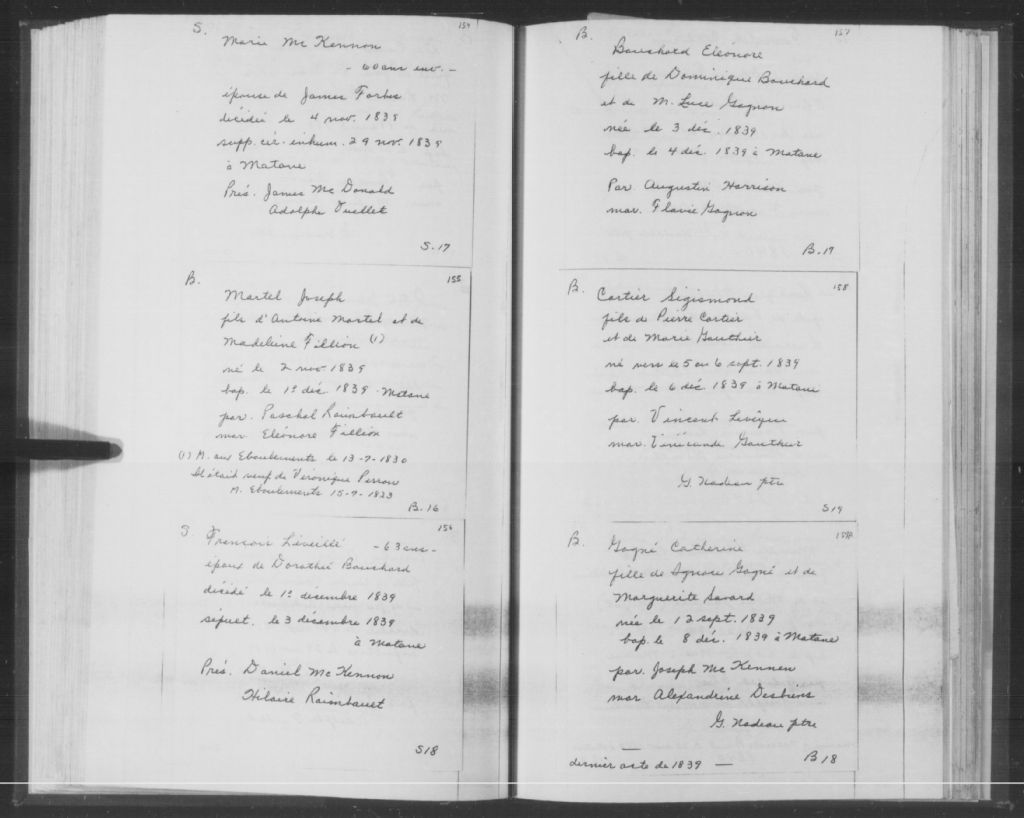 S. 154
Marie Mc Kennon
- 60 ans env. -
épouse de James Forbes
décédée le 4 nov. 1839
supp. cér. inhum. 29 nov. 1839
à Matane
Prés. James Mc Donald
Adolphe Ouellet
S.17
B. 155
Martel Joseph
fils d'Antoine Martel et de
Madeleine Fillion (1)
né le 2 nov 1839
bap. le 1º déc. 1839 - Matane
par. Paschal Raimbault
mar. Eléonore Fillion
(1) M. aux Eboulements le 13-7-1830
Il était veuf de Véronique Perron
M. Eboulements 15-9-1823
B.16
S. 156
Francois Léveillé - 63 ans -
époux de Dorothée Bouchard
décédé le 1º décembre 1839
sépult. le 3 décembre 1839
à Matane
Prés. Daniel Mc Kennon
Hilaire Raimbault
S18
B. 157
Bouchard Eléonore
fille de Dominique Bouchard
et de M. Luce Gagnon
née le 3 déc. 1839
bap. le 4 déc. 1839 à Matane
Par Augustin Harrison
mar. Flavie Gagnon
B.17
B. 158
Cartier Sigismond
fils de Pierre Cartier
et de Marie Gauthier
né vers le 5 ou 6 sept. 1839
bap. le 6 déc. 1839 à Matane
par. Vincent Levêque
mar. Gauthier
G. Nadeau ptre
S19
B. 159
Gagné Catherine
fille de Ignace Gagné et de
Marguerite Savard
née le 12 sept. 1839
bap. le 8 déc. 1839 à Matane
par Joseph Mc Kennen
mar Alexandrine Desbiens
G. Nadeau ptre
B18
dernier acte de 1839 —